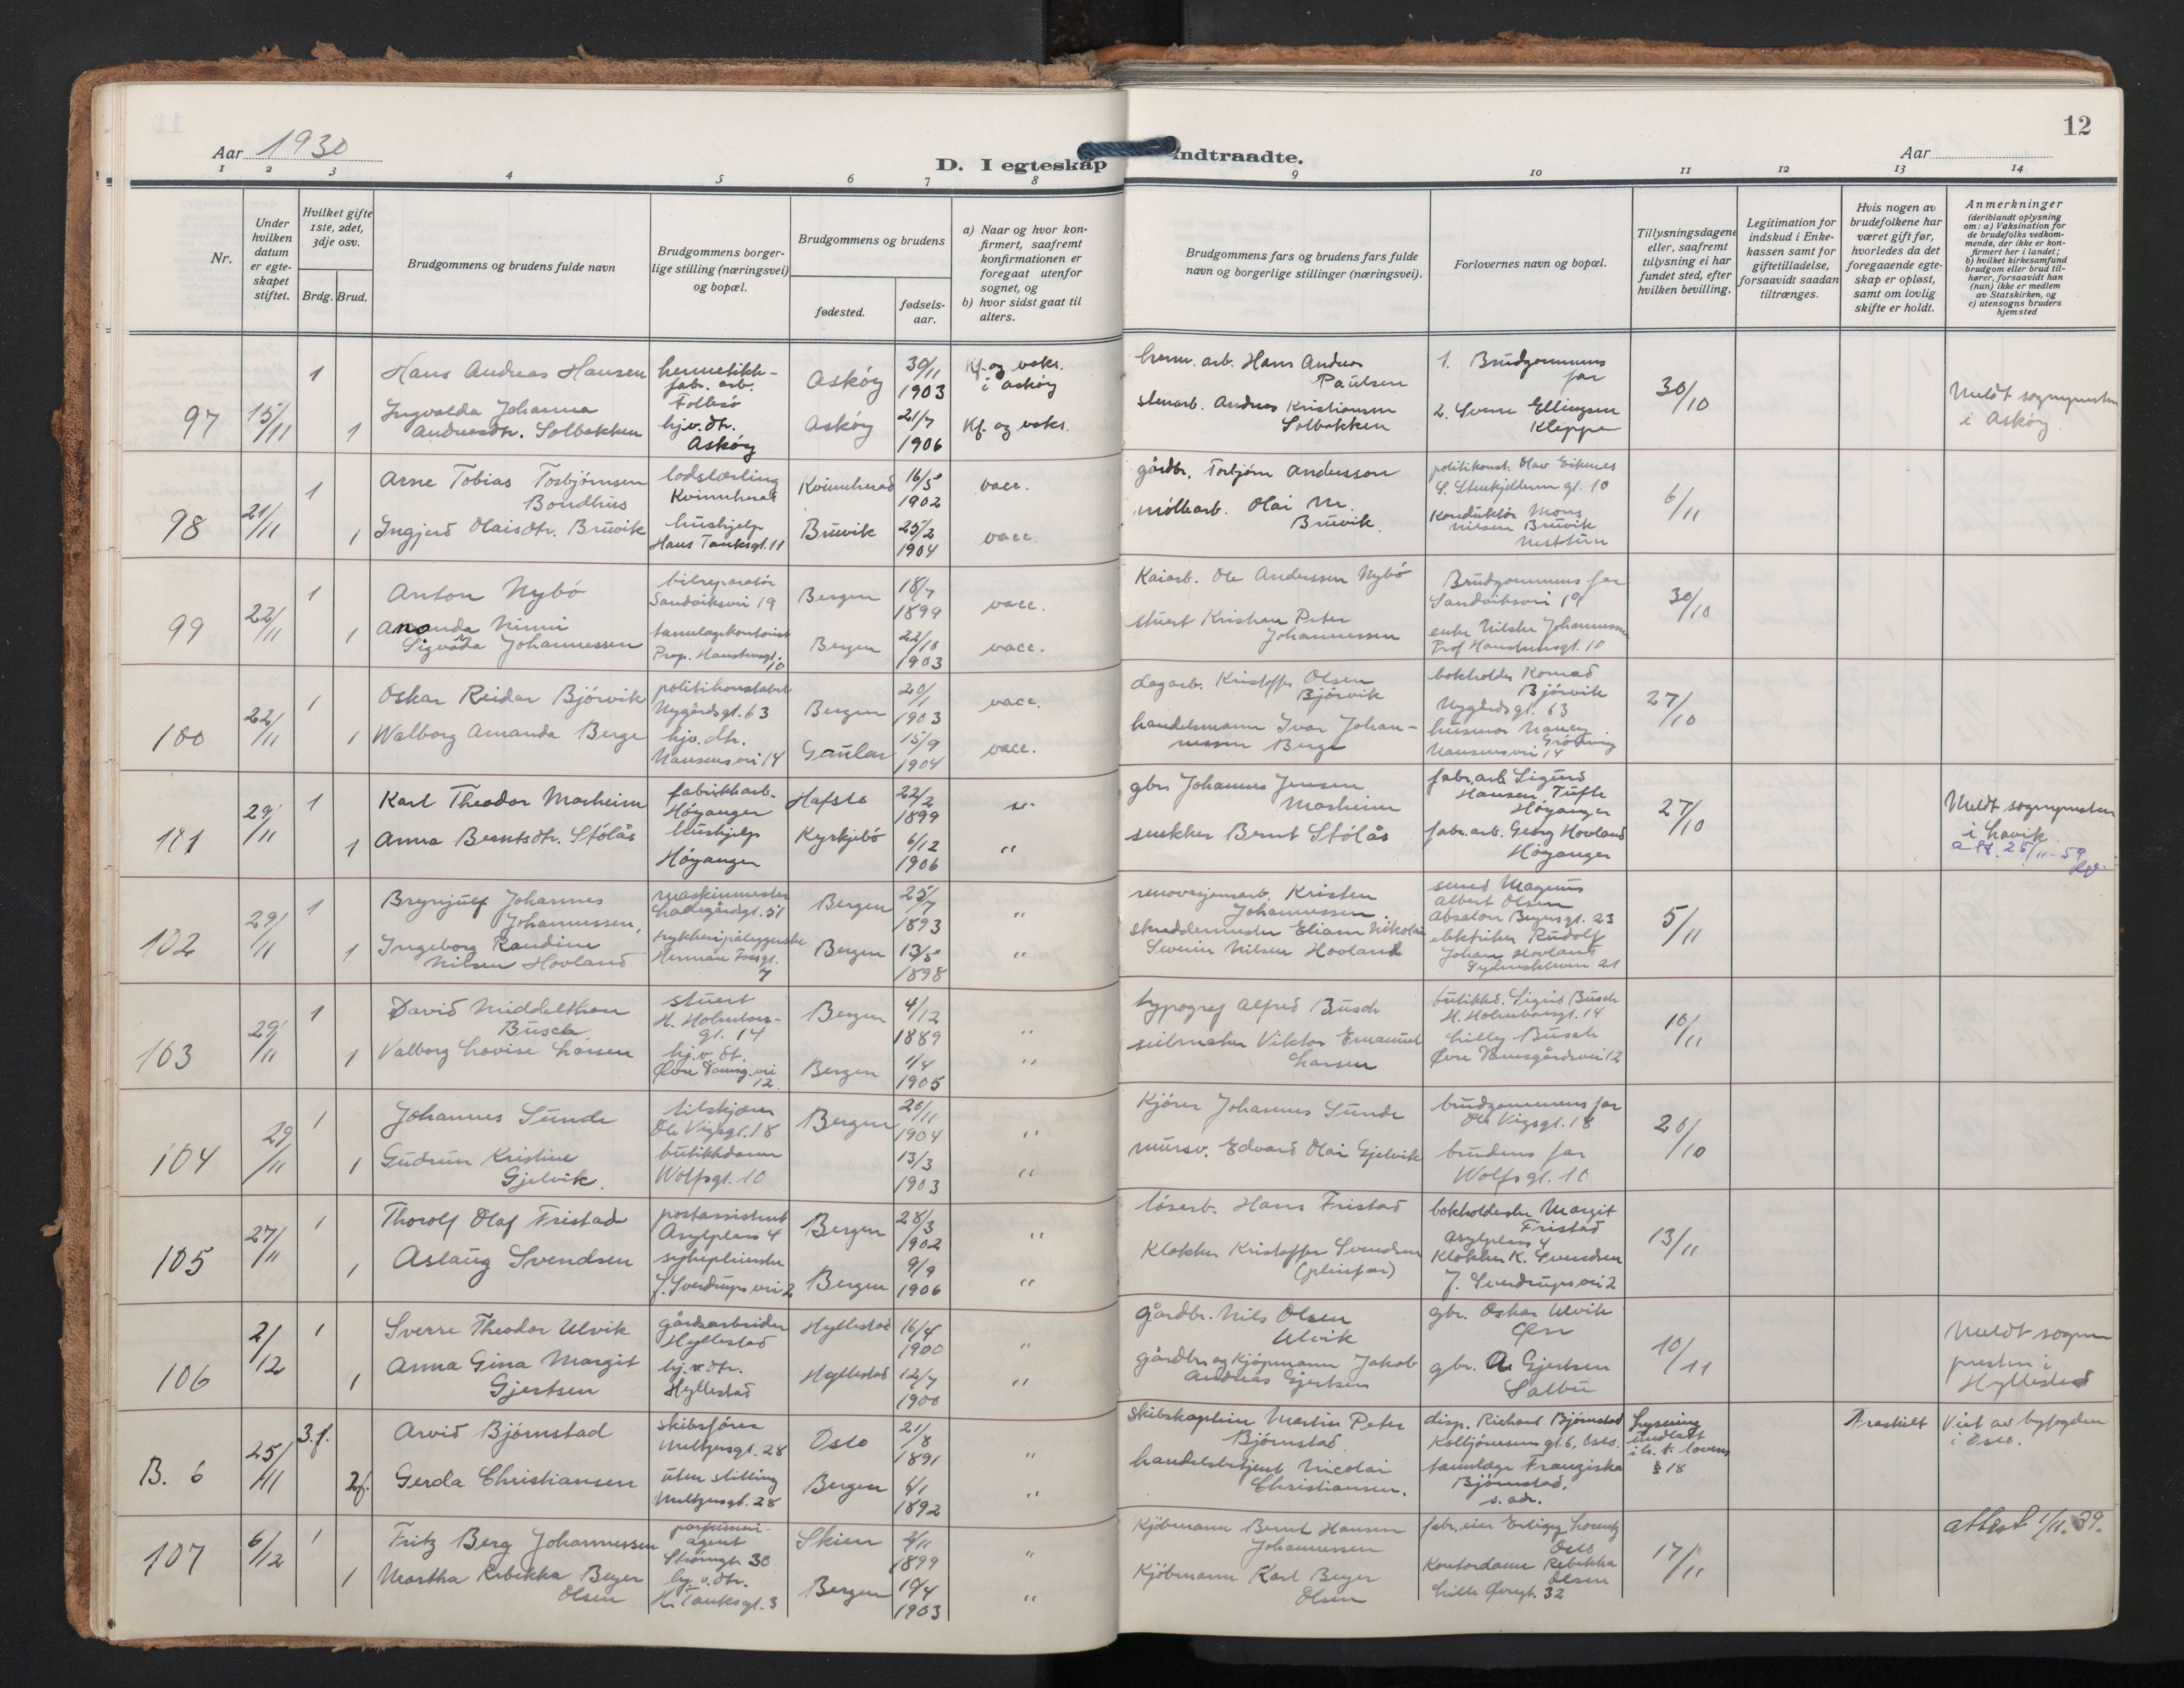 12
Aar 1930
D. I egteskap indtraadte.
Aar
1 2 3 4 5 6 7 8 9 10 11 12 13 14
Nr.
Under hvilken datum er egteskapet stiftet.
Hvilket gifte 1ste, 2det, 3dje osv.
Brdg. Brud.
Brudgommens og brudens fulde navn
Brudgommens borgerlige stilling (næringsvei) og bopæl.
Brudgommens og brudens
fødested.
fødselsaar.
a) Naar og hvor konfirmert, saafremt konfirmationen er foregaat utenfor sognet, og
b) hvor sidst gaat til alters.
Brudgommens fars og brudens fars fulde navn og borgerlige stillinger (næringsvei).
Forlovernes navn og bopæl.
Tillysningsdagene eller, saafremt tillysning ei har fundet sted, efter hvilken bevilling.
Legitimation for indskud i Enkekassen samt for giftetilladelse, forsaavidt saadan tiltrænges.
Hvis nogen av brudefolkene har været gift før, hvorledes da det foregaaende egteskap er opløst, samt om lovlig skifte er holdt.
Anmerkninger
(deriblandt oplysning om: a) Vaksination for de brudefolks vedkommende, der ikke er konfirmert her i landet; b) hvilket kirkesamfund brudgom eller brud tilhører, forsaavidt han (hun) ikke er medlem av Statskirken, og c) utensogns bruders hjemsted
97 15/11 1 Hans Andreas Hansen hermetikkfab. arb. Askøy 30/11 1903 Kf. og vaks. i Askøy
herm. arb. Hans Andreas Paulsen 1. Brudgommens far 30/10 Meldt sognepresten i Askøy
1 Ingvalda Johanna Andreasdtr. Solbakken hjv. dtr. Askøy Askøy 21/7 1906 Kf. og vaks.
stenarb. Andreas Kristiansen Solbakken 2. Sverre Ellingsen Kleppe
98 21/11 1 Arne Tobias Torbjørnsen Bondhus lodslærling Kvinnherad Kvinnherad 16/5 1902 vacc.
gårdbr. Torbjørn Andersson politikonst. Olav Eikenes 10 6/11
1 Ingjerd Olaisdtr. Bruvik hushjelp Hans Tanksgt. 11 Bruvik 25/2 1904 vacc.
møllearb. Olai M. Bruvik. Konduktør Mons Nilsen Bruvik Nesttun
99 22/11 1 Anton Nybö bilreparatör Sandviksvei 19 Bergen 18/7 1899 vacc.
Kaiarb. Ole Anderssen Nybö Brudgommens far Sandviksvei 19 30/10
1 Amanda Ninni Sigvarda Johannessen Prof. Hansteensgt. 10 Bergen 22/10 1903 vacc.
stuert Kristian Peter Johannessen enke Johannessen Prof Hansteensgt. 10
100 22/11 1 Oskar Reidar Björvik politikonstabel Nygårdsgt. 63 Bergen 20/1 1903 vacc.
dagarb. Kristoffer Olsen Björvik bokholder Konrad Björvik Nygårdsgt. 63 27/10
1 Walborg Amanda Berge hjv. dtr. Nansensvei 14 Gaular 15/9 1904 vacc.
handelsmann Ivar Johannessen Berge husmor Nanny Gröning Nansensvei 14
101 29/11 1 Karl Theodor Marheim fabrikkarb. Höyanger Hafslo 22/2 1899
gbr. Johannes Jensen Marheim fabr. arb. Sigurd Hansen Tufte Höyanger 27/10 Meldt sognepresten i Lavik
1 Anna Berntsdtr. Stölås hushjelp Höyanger Kyrkjebö 6/12 1906 "
snekker Bernt Stölås fabr. arb. Georg Hovland Höyanger 25/11-59
102 29/11 1 Brynjulf Johannes Johannessen, maskinmester Ladegårdsgt. 51 Bergen 25/7 1893 "
renovasjonsarb. Kristen Johannessen. smed Magnus Albert Olsen Absalon Beyersgt. 23 5/11
1 Ingeborg Randine Nilsen Hovland trykkeripåleggerske Herman Fossgt. 7 Bergen 13/5 1898 "
skreddermester Eliam Nikolai Severin Nilsen Hovland elektriker Rudolf Johan Hovland 21
103 29/11 1 David Middelthon Busch stuert H. Holmboesgt. 14 Bergen 4/12 1889 "
typograf Alfred Busch Sigrid Busch H. Holmboesgt. 14 10/11
1 Valborg Lovise Larsen hj. v. dt. Øvre Damsg. vei 12. Bergen 1/4 1905 "
seilmaker Viktor Emanuel Larsen Lilly Busch Øvre Damsgårdsvei 12
104 29/11 1 Johannes Sunde Ole Vigsgt. 18 Bergen 20/11 1904 "
Kjörer Johannes Sunde brudgommens far Ole Vigsgt. 18 20/10
1 Gudrun Kristine Gjelvik. butikkdame Wolfsgt. 10 13/3 1903 "
mursv. Edvard Olai Gjelvik brudens far Wolfsgt. 10
105 27/11 1 Thorolf Olaf Fristad postassistent Asylplass 4 Bergen 28/3 1902 "
Hans Fristad bokholderske Margit Fristad Asylplass 4 13/11
1 Aslaug Svendsen sykepleierske J. Sverdrups vei 2 Bergen 9/9 1906 "
Klokker Kristoffer Svendsen (pleiefar) Klokker K. Svendsen J. Sverdrups vei 2
106 2/12 1 Sverre Theodor Ulvik gårdsarbeider Hyllestad Hyllestad 16/4 1900 "
gårdbr. Nils Olsen Ulvik gbr. Oskar Ulvik Øen 10/11 Meldt sognepresten i Hyllestad
1 Anna Gina Margit Gjertsen hj. v. dtr. Hyllestad Hyllestad 12/7 1900 "
gårdbr. og Kjöpmann Jakob Andreas Gjertsen gbr. A. Gjertsen Salbu
B. 6 25/11 3.f. Arvid Björnstad skibsförer Meltzersgt. 28 Oslo 21/8 1891 "
skibskaptein Martin Peter Björnstad. disp. Richard Björnstad gt. 6, Oslo. Lysning undlatt i h. t. lovens § 18 Fraskilt Viet av byfogden i Oslo.
2f. Gerda Christiansen uten stilling Meltzersgt. 28 Bergen 6/1 1892 "
handelsbetjent Nicolai Christiansen. tannlæge Franziska Björnstad. s. adr.
107 6/12 1 Fritz Berg Johannessen parfumeriagent Strömgt. 30 Skien 2/11 1899 "
Kjöbmann Bernt Hansen Johannessen fabr. eier Erling Lorentz Oslo 17/11 attest 1/11.39.
1 Martha Rebekka Beyer Olsen hj. v. dtr. H. Tanksgt. 3 Bergen 10/4 1903 "
Kjöbmann Karl Beyer Olsen Kontordame Rebekka Olsen Lille Øvregt. 32